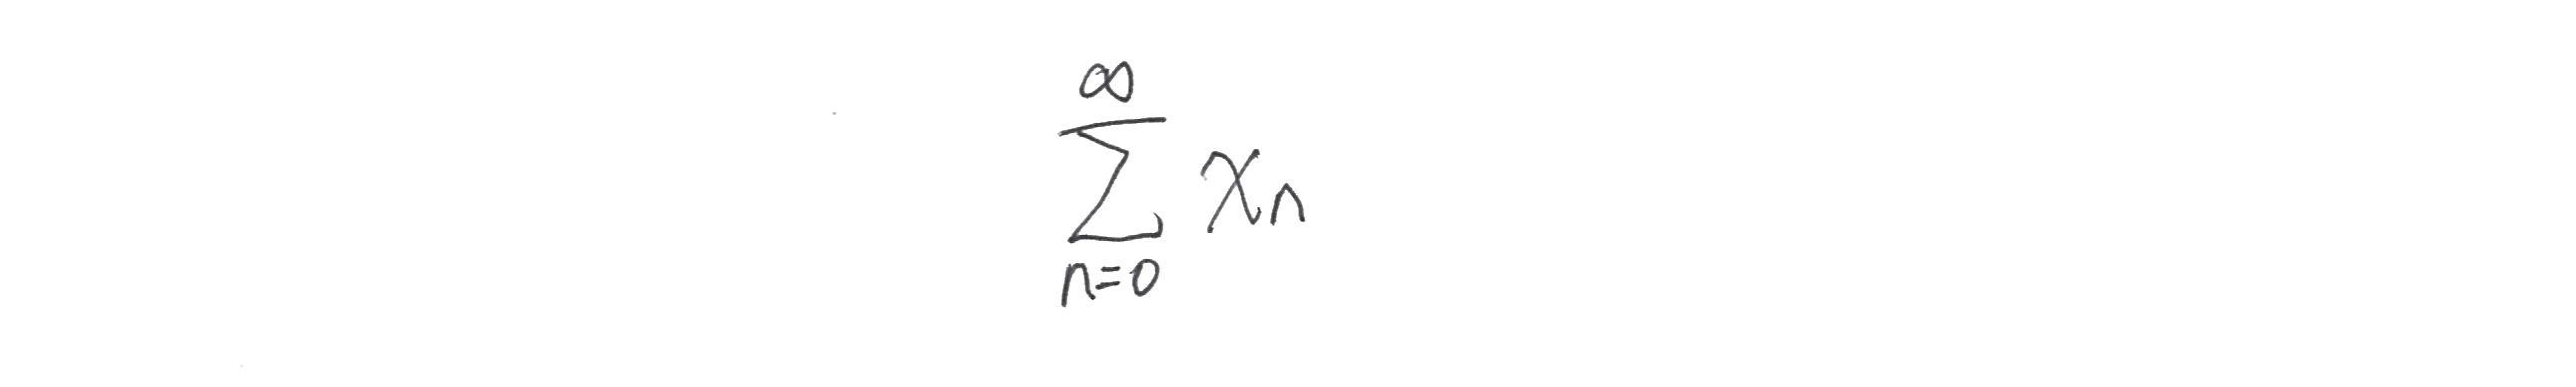 \sum_{n=0}^{\infty} x_n